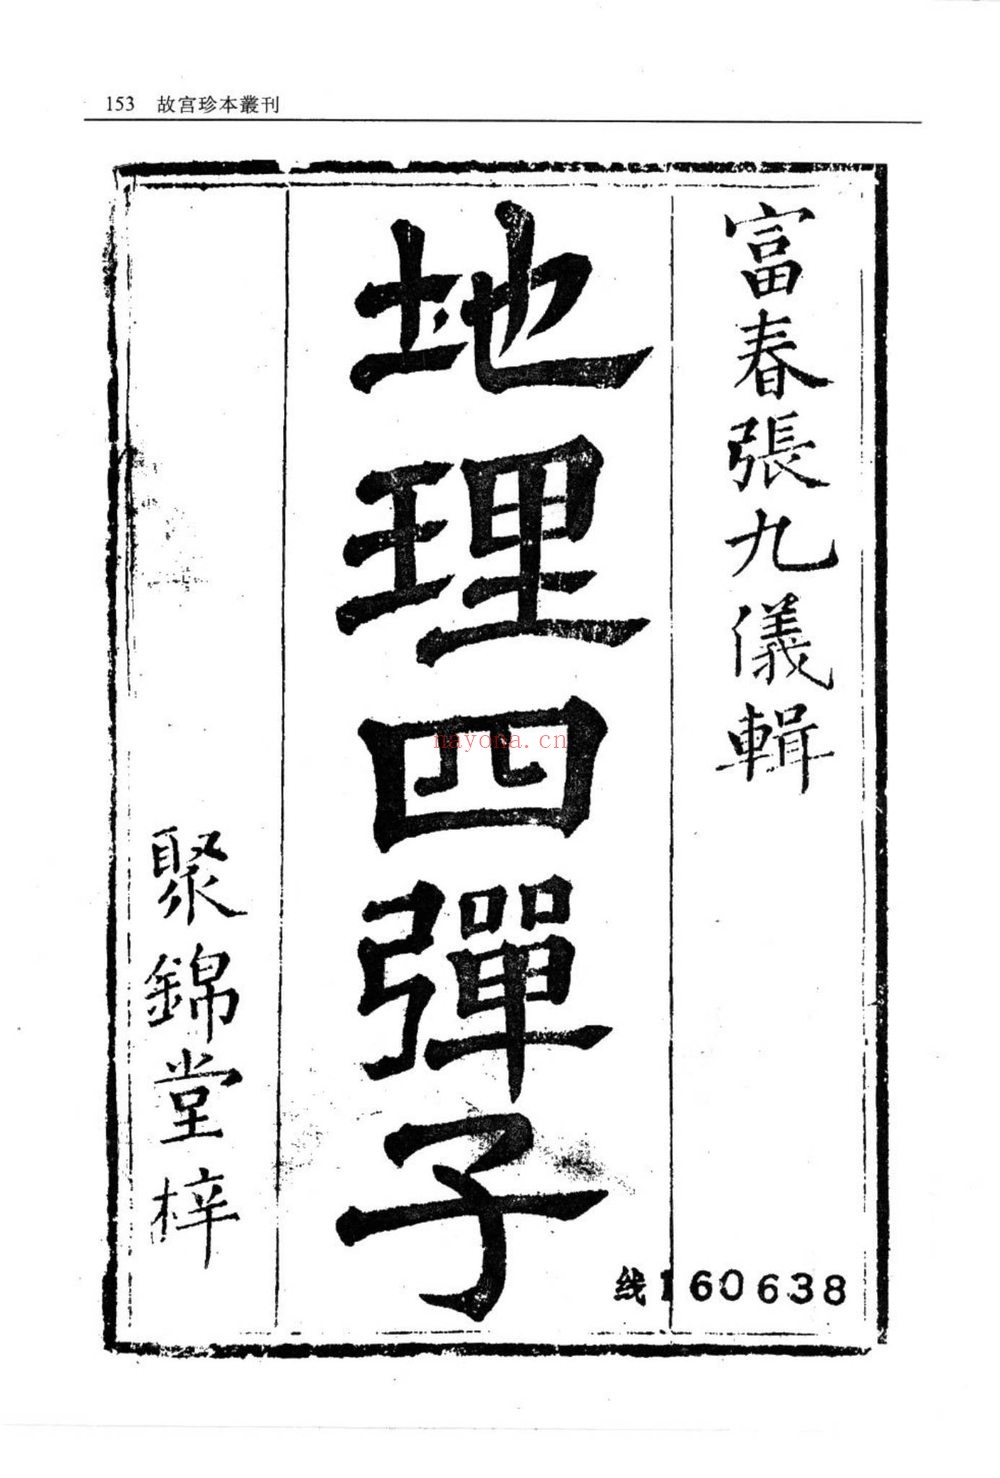 153 故宫珍本叢刊
富春張九儀輯
地理四彈子
聚錦堂梓
线160638
nayona.cn